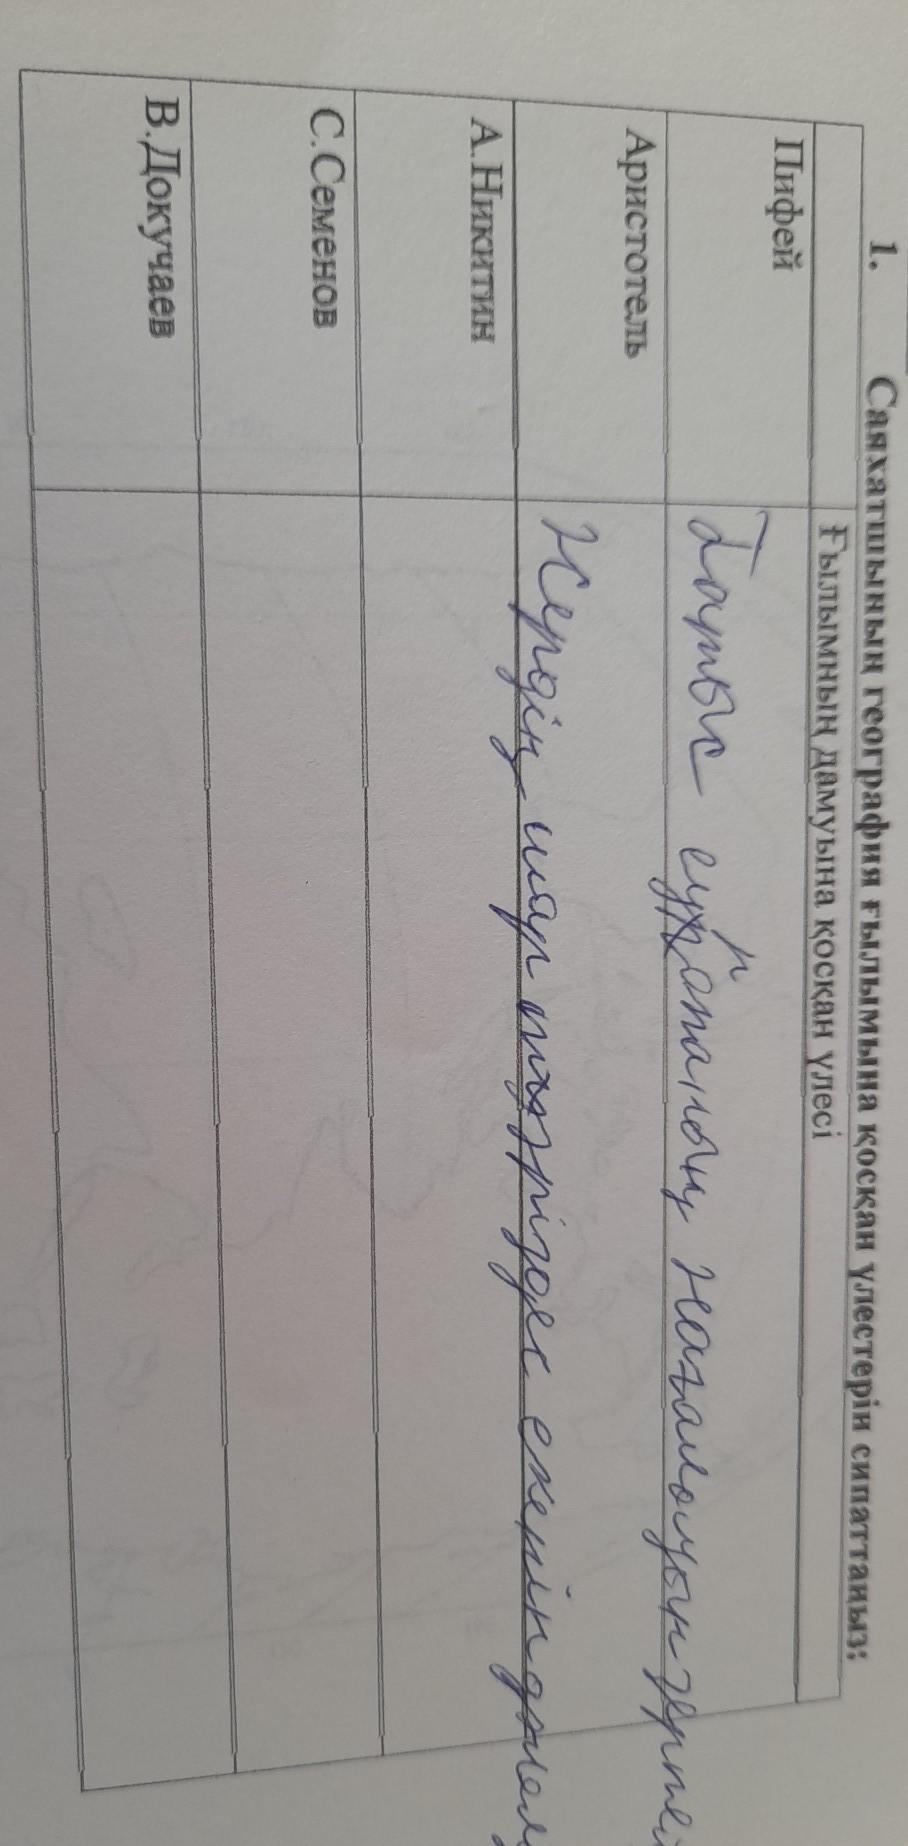 1. Саяхатшының география ғылымына қосқан үлестерін сипаттаңыз:
Ғылымның дамуына қосқан үлесі
Пифей
Батыс еуропаның жағалауын зерттеп
Аристотель
Жердің шар тәрізді екенін дәлел
А.Никитин
С.Семенов
В.Докучаев